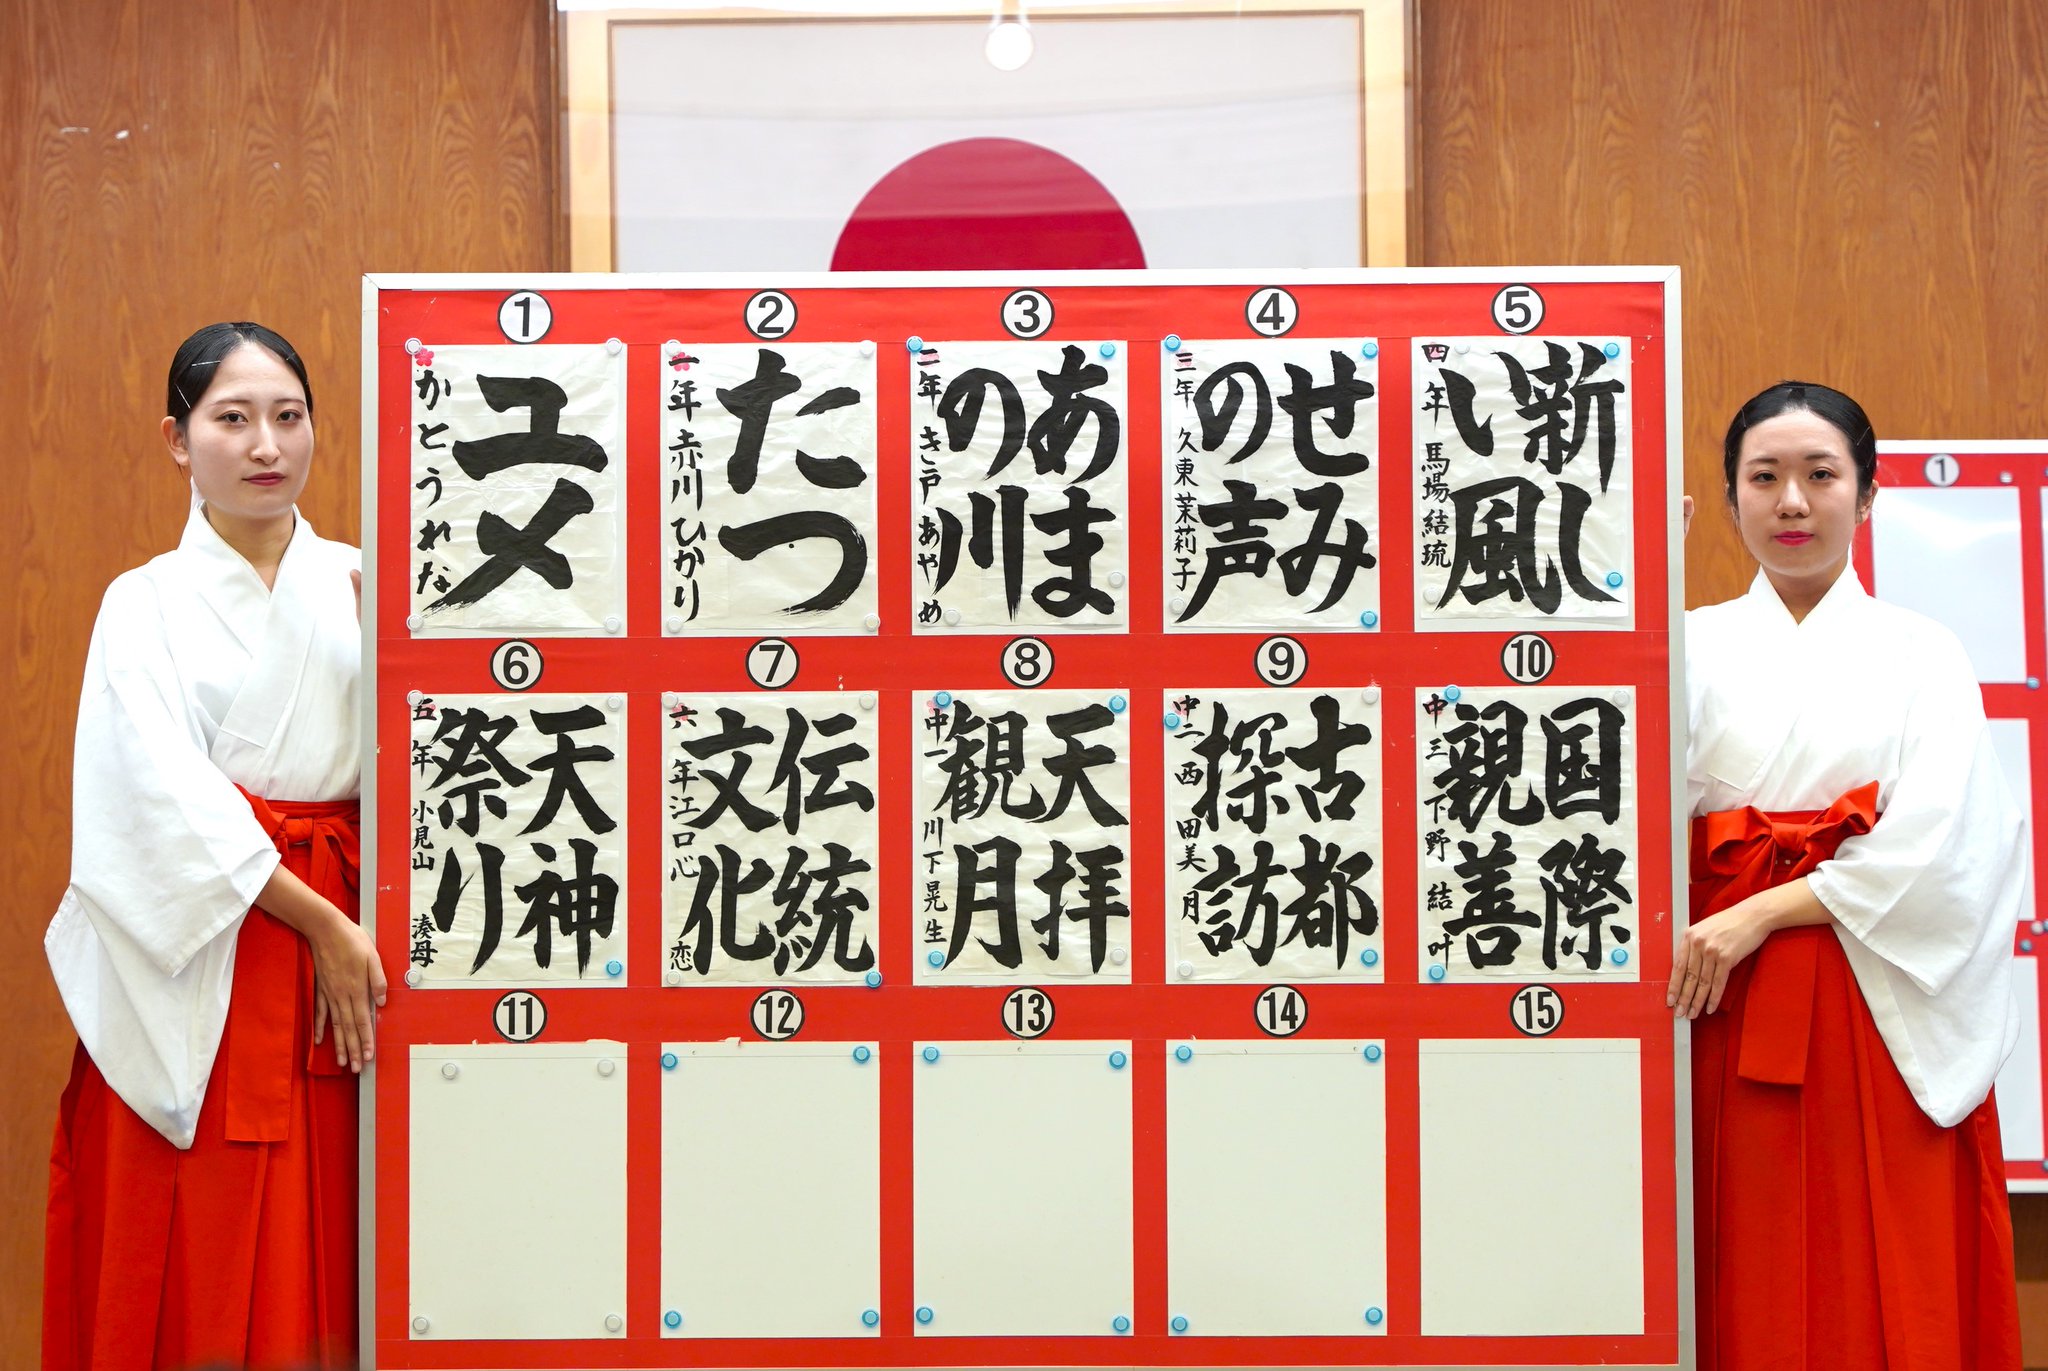 ①
ユメ
かとうれな
②
たつ
一年 赤川ひかり
③
あま
の川
二年 き戸あやめ
④
せみ
の声
三年 久東茉莉子
⑤
新し
い風
四年 馬場結琉
⑥
天神
祭り
五年 小見山湊母
⑦
伝統
文化
六年 江口心恋
⑧
天拝
観月
中一 川下晃生
⑨
古都
探訪
中二 西田美月
⑩
国際
親善
中三 下野結叶
⑪
⑫
⑬
⑭
⑮
①